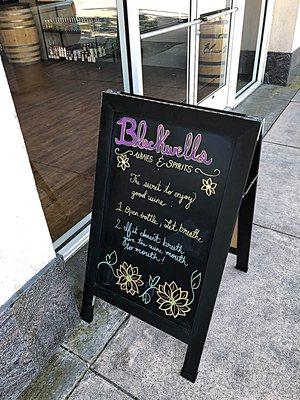 Blackwells
WINES & SPIRITS
The secret to enjoy
good wine:
1. Open bottle, Let breathe
2. If it doesn't breath
give the wine mouth
to mouth!